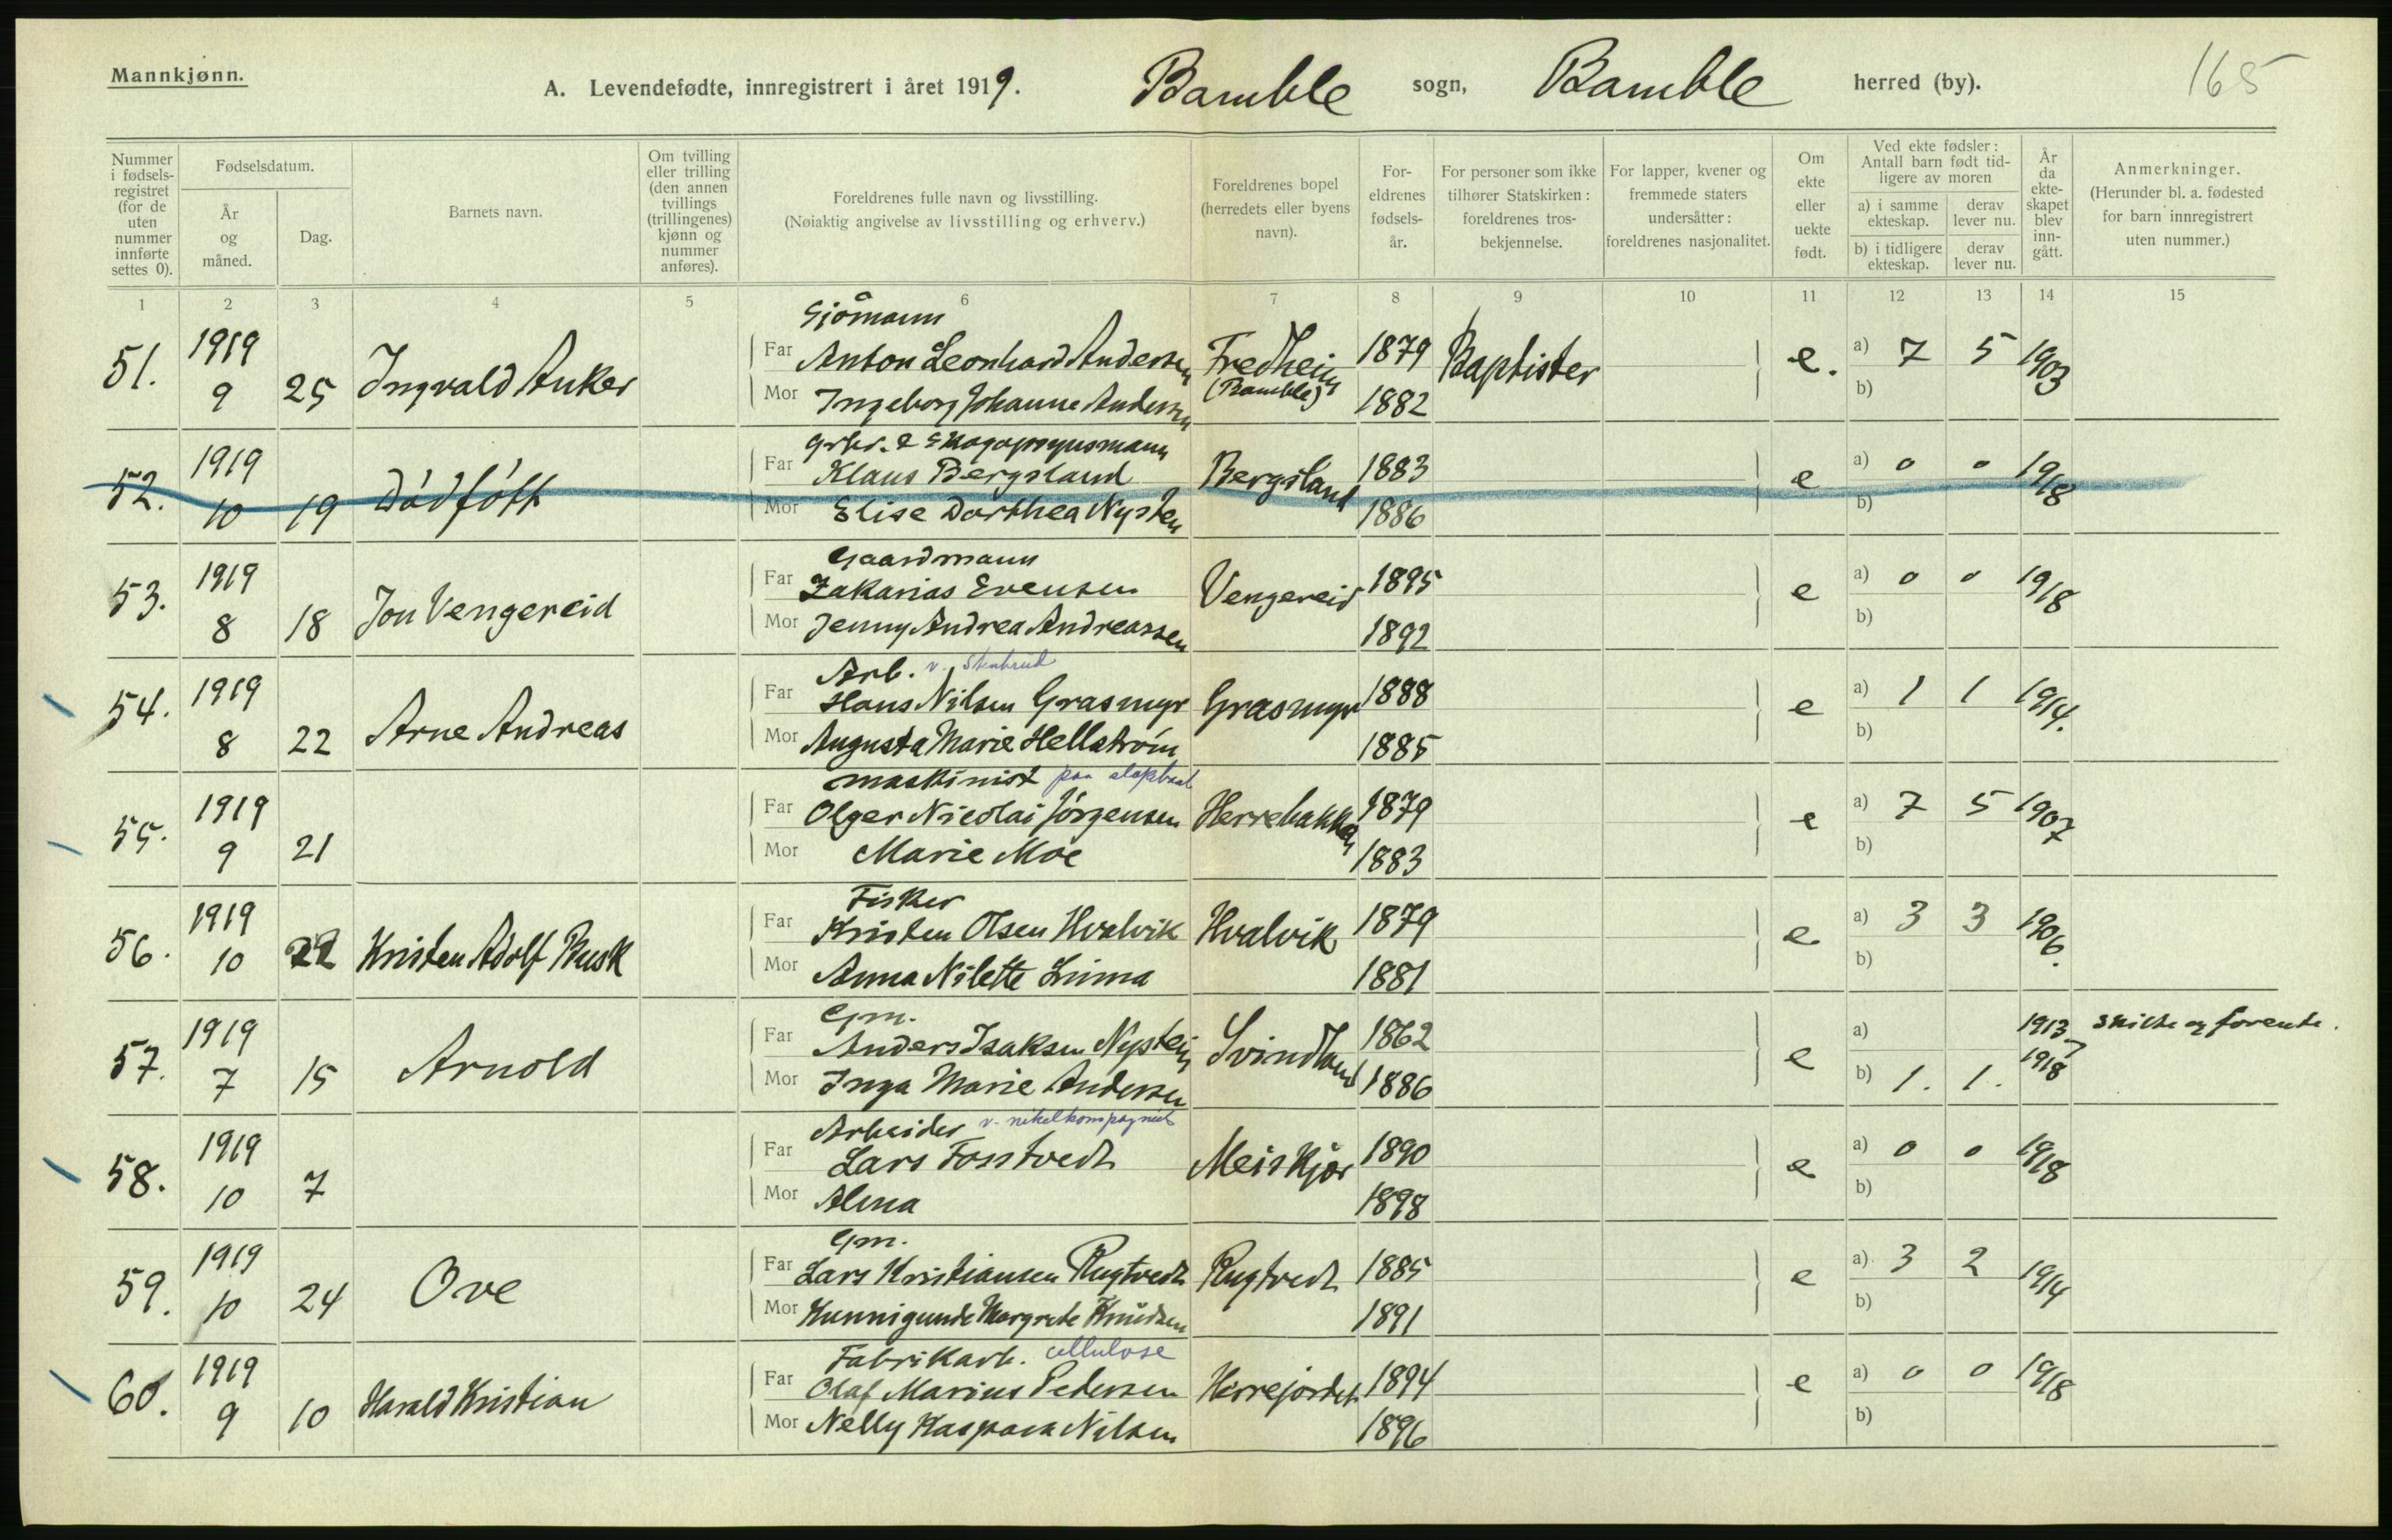 165
Mannkjønn.
A. Levendefødte, innregistrert i året 1919. Bamble sogn, Bamble herred (by).
Nummer i fødsels-registret (for de uten nummer innførte settes 0).
Fødselsdatum.
År og måned.
Dag.
Barnets navn.
Om tvilling eller trilling (den annen tvillings (trillingenes) kjønn og nummer anføres).
Foreldrenes fulle navn og livsstilling.
(Nøiaktig angivelse av livsstilling og erhverv.)
Foreldrenes bopel (herredets eller byens navn).
For-eldrenes fødsels-år.
For personer som ikke tilhører Statskirken: foreldrenes tros-bekjennelse.
For lapper, kvener og fremmede staters undersåtter: foreldrenes nasjonalitet.
Om ekte eller uekte født.
Ved ekte fødsler: Antall barn født tid-ligere av moren
a) i samme ekteskap.
derav lever nu.
b) i tidligere ekteskap.
derav lever nu.
År da ekte-skapet blev inn-gått.
Anmerkninger.
(Herunder bl. a. fødested for barn innregistrert uten nummer.)
1 2 3 4 5 6 7 8 9 10 11 12 13 14 15
Sjömann
51. 1919 Far Anton Leonhard Andersen Fredheim 1879 Baptister e. a) 7 5 1903
9 25 Ingvald Anker Mor Ingeborg Johanne Andersen (Bamble) 1882 b)
52. 1919 Far Klaus Bergsland Bergsland 1883 e a) 0 0 1918
10 19 Dödfött Mor Elise Dorthea Nysten 1886 b)
Gaardmann
53. 1919 Far Zakarias Evensen Vengereid 1895 e a) 0 0 1918
8 18 Jon Vengereid Mor Jenny Andrea Andreassen 1892 b)
Arb. v. stenbrud
54. 1919 Far Hans Nilsen Grasmyr Grasmyr 1888 e a) 1 1 1914.
8 22 Arne Andreas Mor Augusta Marie Hellström 1885 b)
maskinist paa slæpbaat
55. 1919 Far Olger Nicolai Jörgensen Herrebakken 1879 e a) 7 5 1907
9 21 Mor Marie Moe 1883 b)
Fisker
56. 1919 Far Kristen Olsen Hvalvik Hvalvik 1879 e a) 3 3 1906.
10 22 Kristen Adolf Busk Mor Anna Nilette Linna 1881 b)
Gm.
57. 1919 Far Anders Isaksen Nystein Svindland 1862 e a) 1913 skilte og forente.
7 15 Arnold Mor Inga Marie Andersen 1886 b) 1. 1. 1918
Arbeider v. nikelkompagniet
58. 1919 Far Lars Fosstvedt Meiskjær 1890 e a) 0 0 1918
10 7 Mor Alma 1898 b)
Gm.
59. 1919 Far Lars Kristiansen Rugtvedt Rugtvedt 1885 e a) 3 2 1914
10 24 Ove Mor Kunnigunde Margrete Knudsen 1891 b)
Fabrikarb. cellulose
60. 1919 Far Olaf Marius Pedersen Herrejordet 1894 e a) 0 0 1918
9 10 Harald Kristian Mor Nelly Kaspara Nilsen 1896 b)